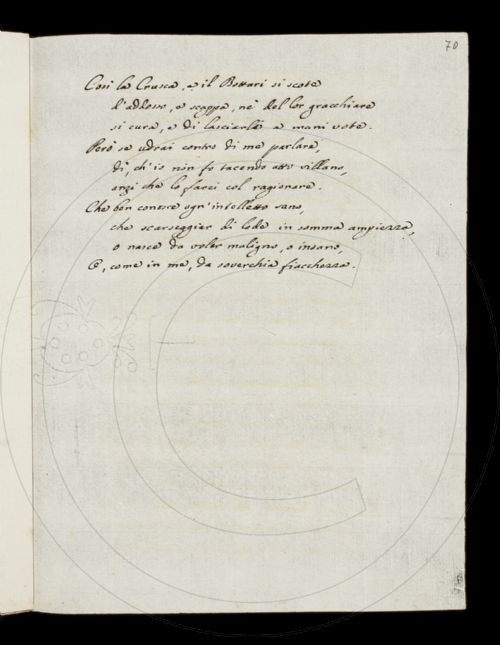 70
Così la Crusca, e il Bottari si scote
d'addosso, e scappa, nè del lor gracchiare
si cura, e di lasciarla a mani vote.
Però se udrai contro di me parlare,
dì, ch'io non fo tacendo atto villano,
anzi che lo farei col ragionare.
Che ben conosce ogn'intelletto sano,
che scarseggiar di lode in somma ampiezza,
o nasce da voler maligno, o insano,
O, come in me, da soverchia fiacchezza.